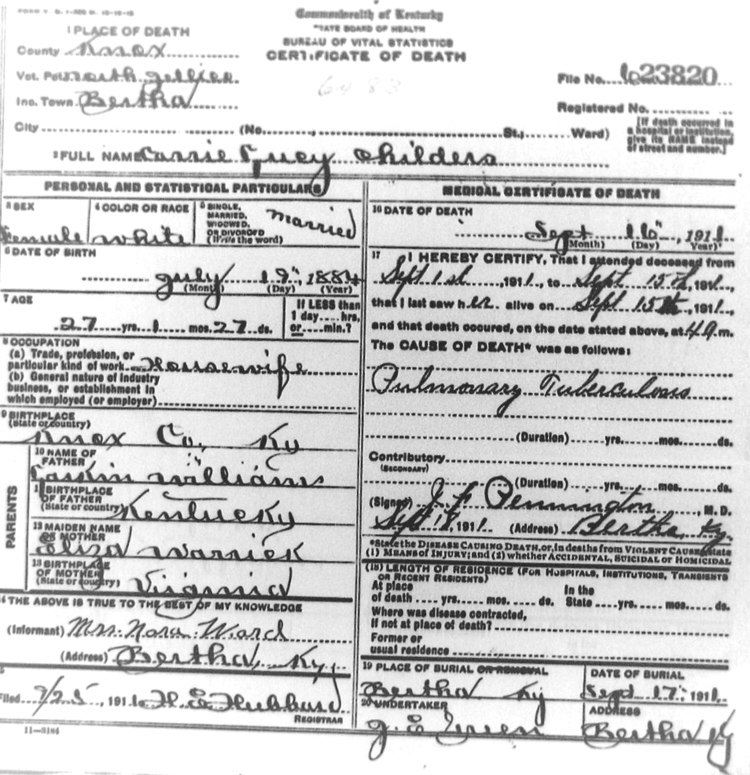 FORM V. S. 1-
Commonwealth of Kentucky
STATE BOARD OF HEALTH
BUREAU OF VITAL STATISTICS
CERTIFICATE OF DEATH
1 PLACE OF DEATH
County Knox
Vot. Pct. north jellico
Inc. Town Bertha
City (No. St.; Ward)
6483
File No. 23820
Registered No.
[If death occurred in a hospital or institution, give its NAME instead of street and number.]
2 FULL NAME Carrie Childers
PERSONAL AND STATISTICAL PARTICULARS
3 SEX
Female
4 COLOR OR RACE
white
5 SINGLE, MARRIED, WIDOWED, OR DIVORCED (Write the word)
Married
6 DATE OF BIRTH
July 19, 1884
(Month) (Day) (Year)
7 AGE
27 yrs. 1 mos. 27 ds.
If LESS than 1 day ... hrs, or ... min.?
8 OCCUPATION
(a) Trade, profession, or particular kind of work Housewife
(b) General nature of industry business, or establishment in which employed (or employer)
9 BIRTHPLACE
(State or country)
Knox Co, Ky
PARENTS
10 NAME OF FATHER
Williams
11 BIRTHPLACE OF FATHER
(State or country) Kentucky
12 MAIDEN NAME OF MOTHER
Eliza Warrick
13 BIRTHPLACE OF MOTHER
(State or country) Virginia
14 THE ABOVE IS TRUE TO THE BEST OF MY KNOWLEDGE
(Informant) Mrs. Nora Ward
(Address) Bertha, Ky.
Filed 9/25, 1911 H. E. Hubbard
REGISTRAR
11-3184
MEDICAL CERTIFICATE OF DEATH
16 DATE OF DEATH
Sept 16, 1911
(Month) (Day) (Year)
17 I HEREBY CERTIFY, That I attended deceased from
Sept 1st, 1911, to Sept 15th, 1911,
that I last saw her alive on Sept 15th, 1911,
and that death occured, on the date stated above, at 4 a.m.
The CAUSE OF DEATH* was as follows:
Pulmonary Tuberculosis
(Duration) yrs. mos. ds.
Contributory
(SECONDARY)
(Duration) yrs. mos. ds.
(Signed) J. F. Pennington, M. D.
Sept, 1911 (Address) Bertha, Ky.
*State the DISEASE CAUSING DEATH, or, in deaths from VIOLENT CAUSES, state
(1) MEANS OF INJURY; and (2) whether ACCIDENTAL, SUICIDAL or HOMICIDAL
(18) LENGTH OF RESIDENCE (FOR HOSPITALS, INSTITUTIONS, TRANSIENTS OR RECENT RESIDENTS)
At place of death yrs. mos. ds. In the State yrs. mos. ds.
Where was disease contracted,
if not at place of death?
Former or
usual residence
19 PLACE OF BURIAL OR REMOVAL
Bertha Ky
DATE OF BURIAL
Sept 17, 1911
20 UNDERTAKER
J. E.
ADDRESS
Bertha Ky